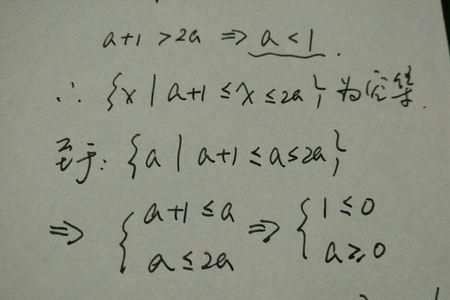 a+1 > 2a ⇒ a < 1.
∴ {x | a+1 ≤ x ≤ 2a} 为空集.
至于: {a | a+1 ≤ a ≤ 2a}
⇒ { a+1 ≤ a ⇒ { 1 ≤ 0
a ≤ 2a a ≥ 0